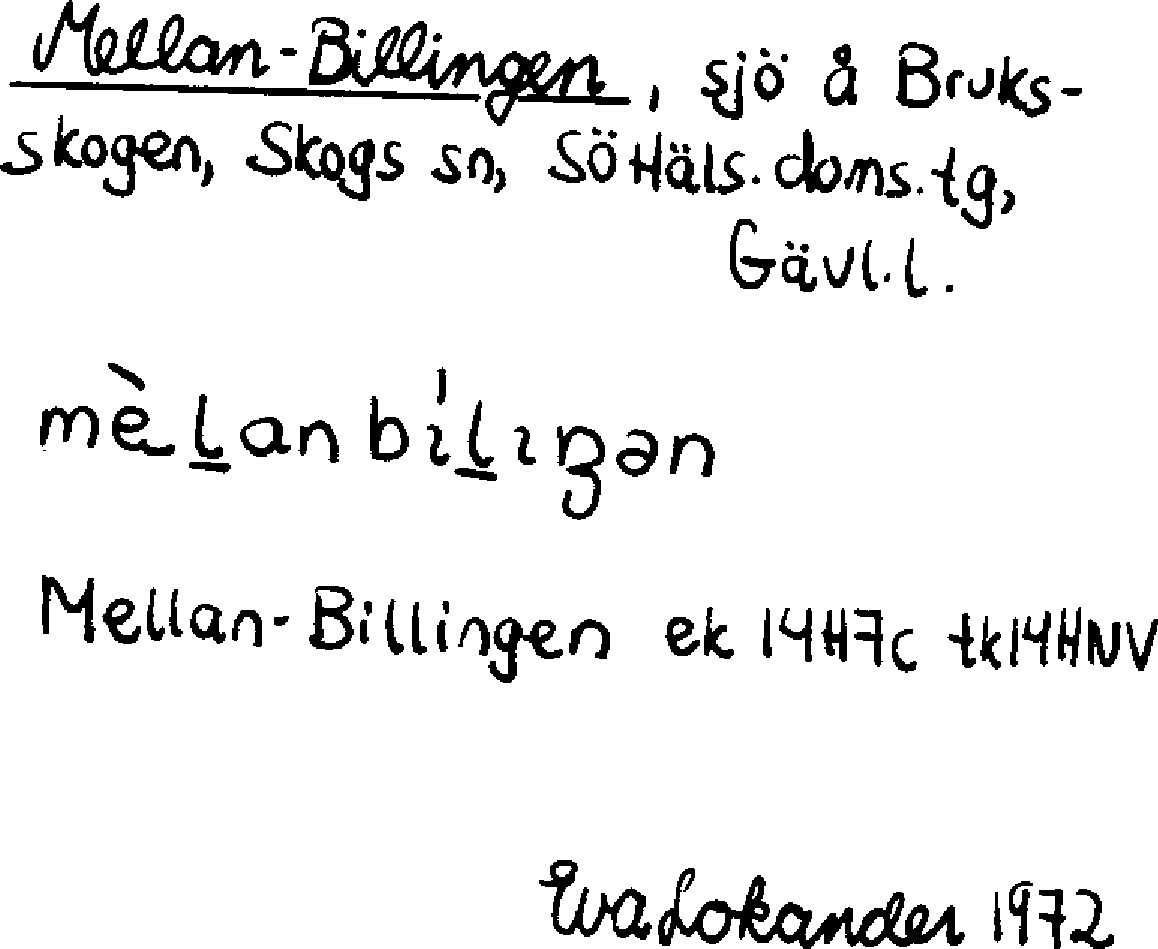 Mellan-Billingen, sjö å Bruks-
skogen, Skogs sn, Sö Häls. doms. tg,
Gävl. l.
mèḻan bíḻıŋən
Mellan-Billingen ek 14H7c tk14HNV
Eva Lokander 1972